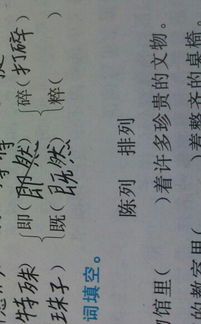 特殊) 即(即然) 碎(打碎)
珠子) 既(既然) 粹( )
词填空。
陈列 排列
馆里( )着许多珍贵的文物。
的教室里( )着整齐的桌椅。